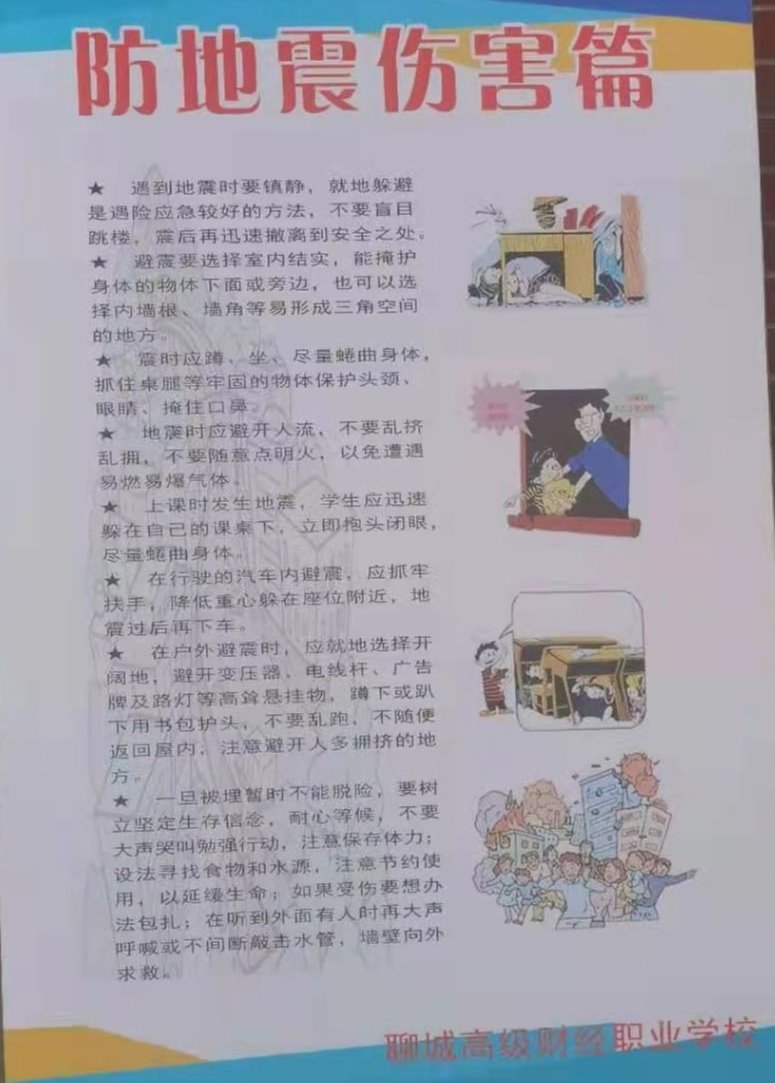 防地震伤害篇
★ 遇到地震时要镇静，就地躲避
是遇险应急较好的方法，不要盲目
跳楼，震后再迅速撤离到安全之处。
★ 避震要选择室内结实，能掩护
身体的物体下面或旁边，也可以选
择内墙根、墙角等易形成三角空间
的地方。
★ 震时应蹲、坐、尽量蜷曲身体，
抓住桌腿等牢固的物体保护头颈、
眼睛、掩住口鼻。
★ 地震时应避开人流，不要乱挤
乱拥，不要随意点明火，以免遭遇
易燃易爆气体。
★ 上课时发生地震，学生应迅速
躲在自己的课桌下，立即抱头闭眼，
尽量蜷曲身体。
★ 在行驶的汽车内避震，应抓牢
扶手，降低重心躲在座位附近，地
震过后再下车。
★ 在户外避震时，应就地选择开
阔地，避开变压器、电线杆、广告
牌及路灯等高耸悬挂物，蹲下或趴
下用书包护头，不要乱跑，不随便
返回屋内，注意避开人多拥挤的地
方。
★ 一旦被埋暂时不能脱险，要树
立坚定生存信念，耐心等候，不要
大声哭叫勉强行动，注意保存体力；
设法寻找食物和水源，注意节约使
用，以延缓生命；如果受伤要想办
法包扎；在听到外面有人时再大声
呼喊或不间断敲击水管，墙壁向外
求救。
聊城高级财经职业学校